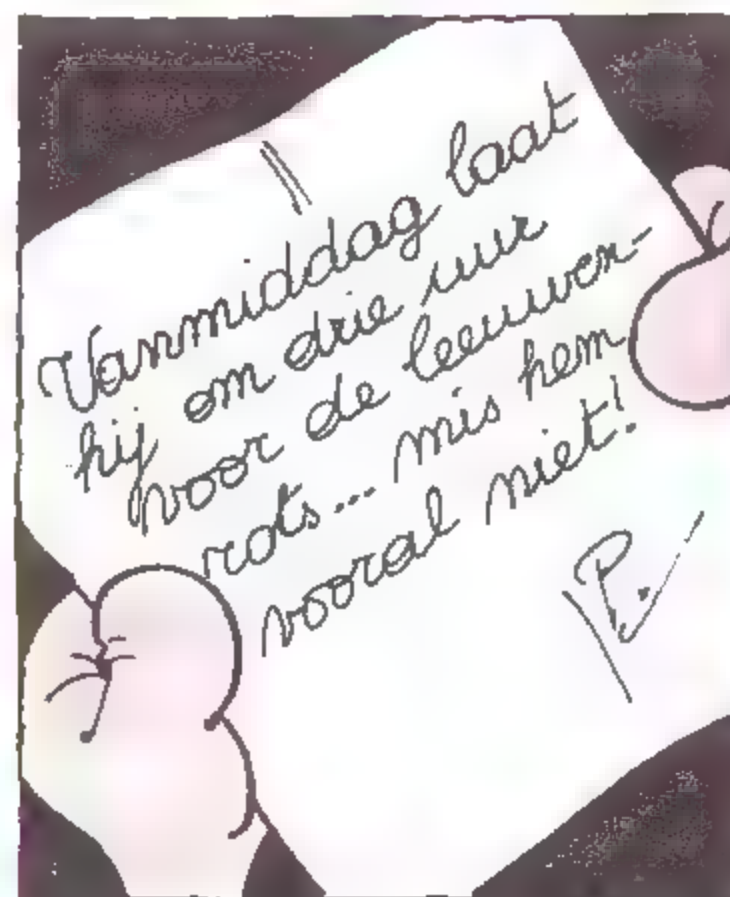 Vanmiddag laat
hij om drie uur
voor de leeuwen-
rots... mis hem
vooral niet!
P.